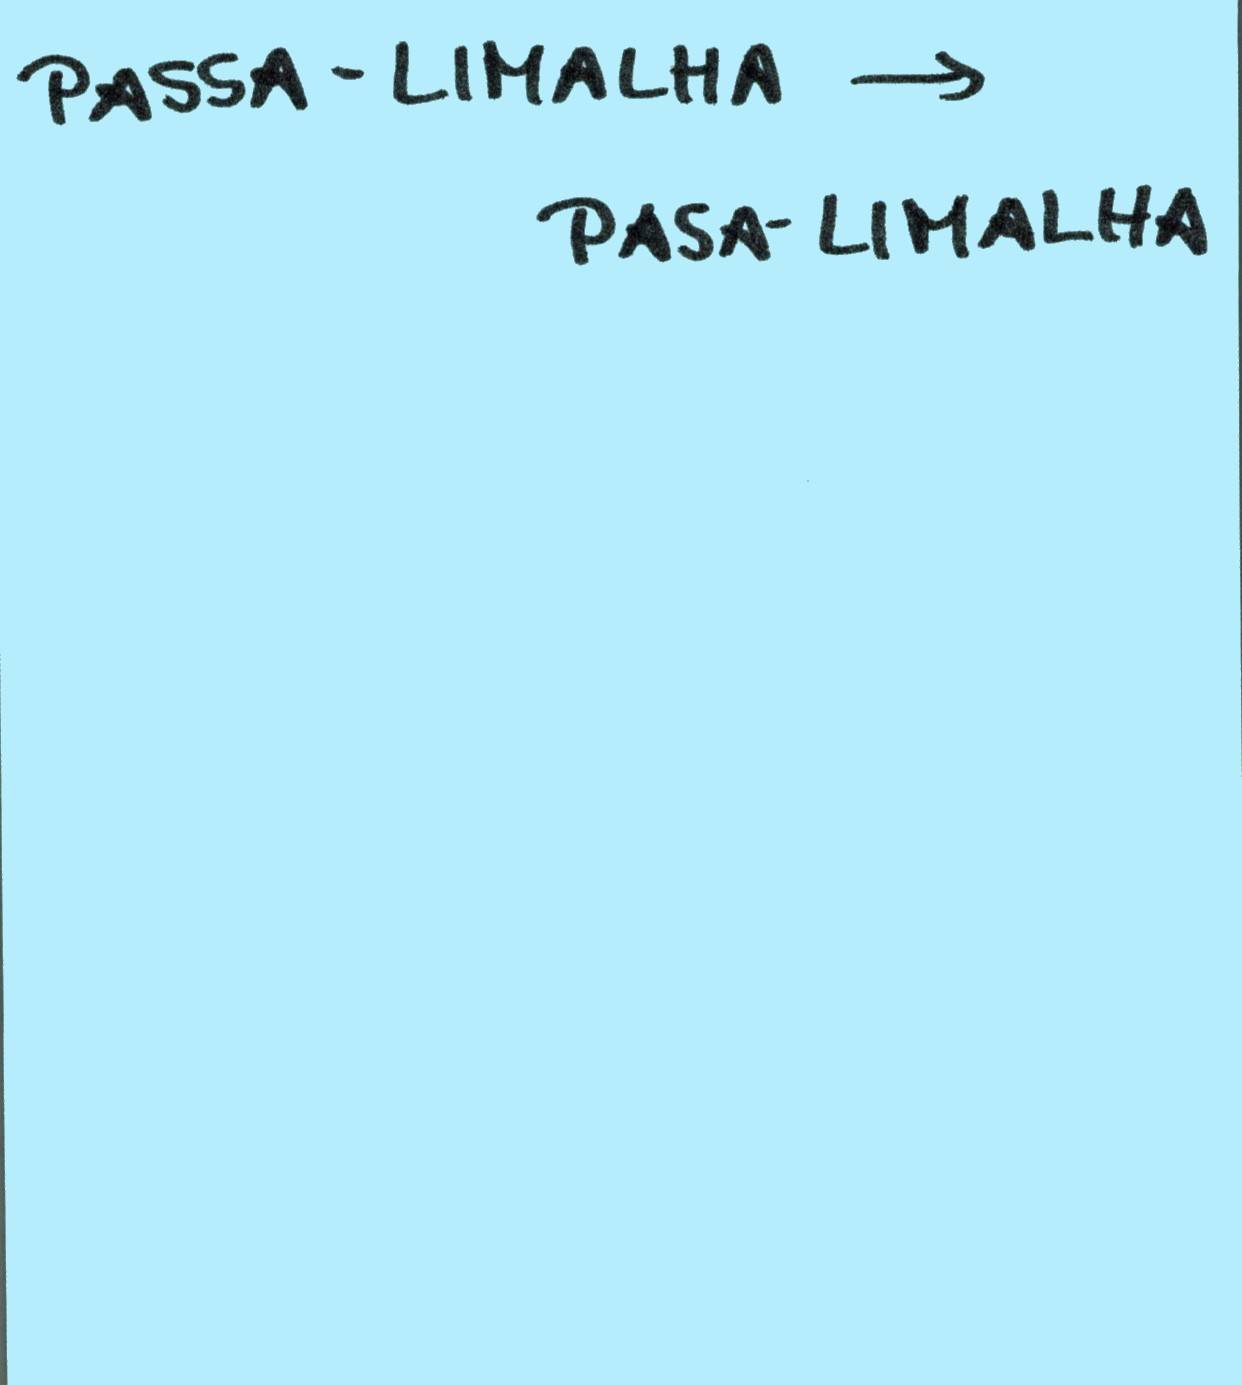 PASSA-LIMALHA →
PASA-LIMALHA